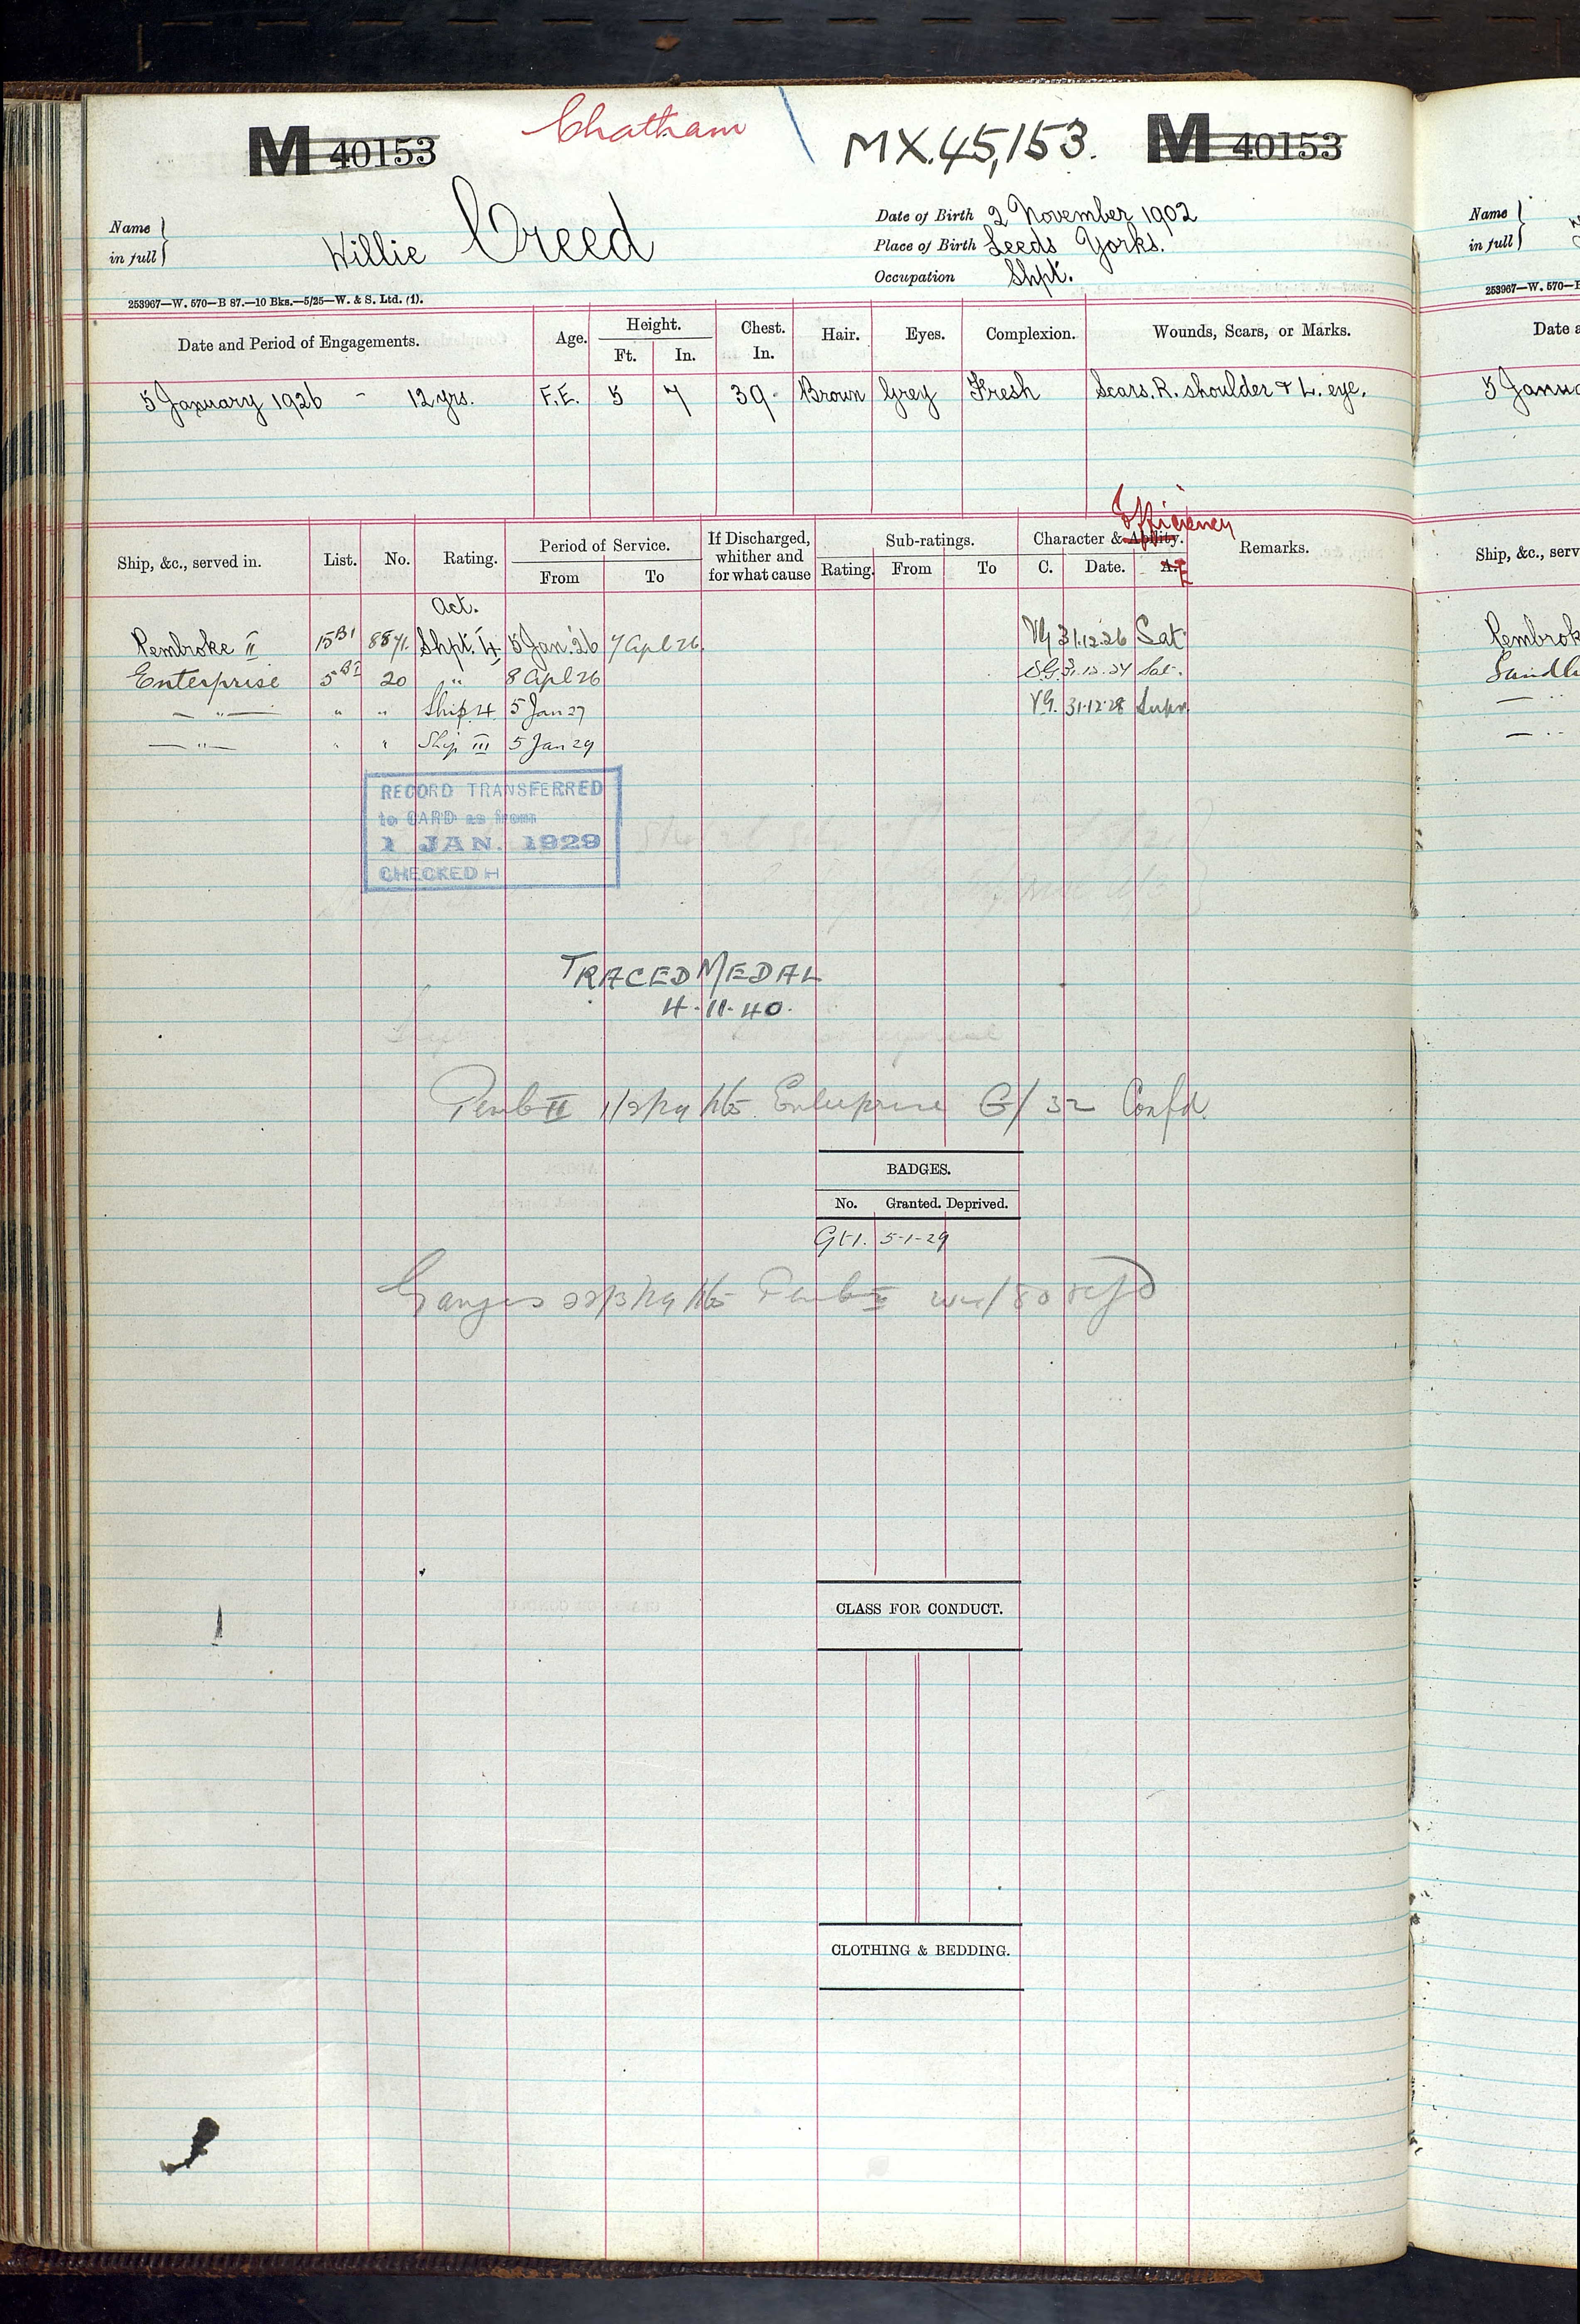 Chatham
M 40153
MX.45,153.
M 40153
Name in full
Willie Creed
Date of Birth 2 November 1902
Place of Birth Leeds Yorks.
Occupation Shpt.
253967—W. 570—B 87.—10 Bks.—5/25—W. & S. Ltd. (1).
Date and Period of Engagements. Age. Height. Ft. In. Chest. In. Hair. Eyes. Complexion. Wounds, Scars, or Marks.
5 January 1926 - 12 yrs. F.E. 5 7 39 Brown Grey Fresh Scars. R. shoulder & L. eye.
Efficiency
Ship, &c., served in. List. No. Rating. Period of Service. From To If Discharged, whither and for what cause Sub-ratings. Rating. From To Character & Ability. C. Date. A. E Remarks.
Act.
Pembroke II 15B1 8871. Shpt. 4 5 Jan. '26 7 Apl 26 VG 31.12.26 Sat
Enterprise 5 20 " 8 Apl 26 V.G. 31.12.27 Sat.
— " — " " Ship. 4 5 Jan 27 VG. 31.12.28 Supr.
— " — " " Ship III 5 Jan 29
RECORD TRANSFERRED
to CARD as from
1 JAN. 1929
CHECKED H
TRACED MEDAL
4.11.40.
Pemb II 1/2/29 Enterprise G/ 32 Confd.
BADGES.
No. Granted. Deprived.
Gt 1. 5-1-29
Ganges 22/3/29 Pemb II
CLASS FOR CONDUCT.
CLOTHING & BEDDING.
Name in full
253967—W. 570—
Date
5 Janu
Ship, &c., serv
Pembrok